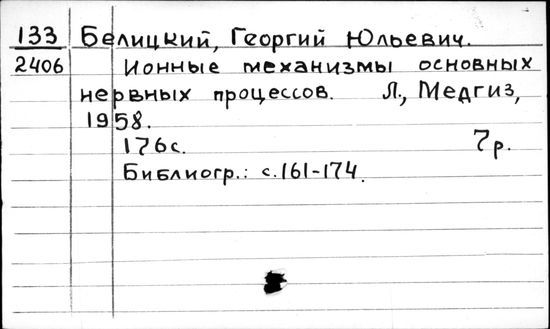 133 Белицкий, Георгий Юльевич.
2406 Ионные механизмы основных
нервных процессов. Л., Медгиз,
1958.
176с. 7р.
Библиогр.: с.161-174.